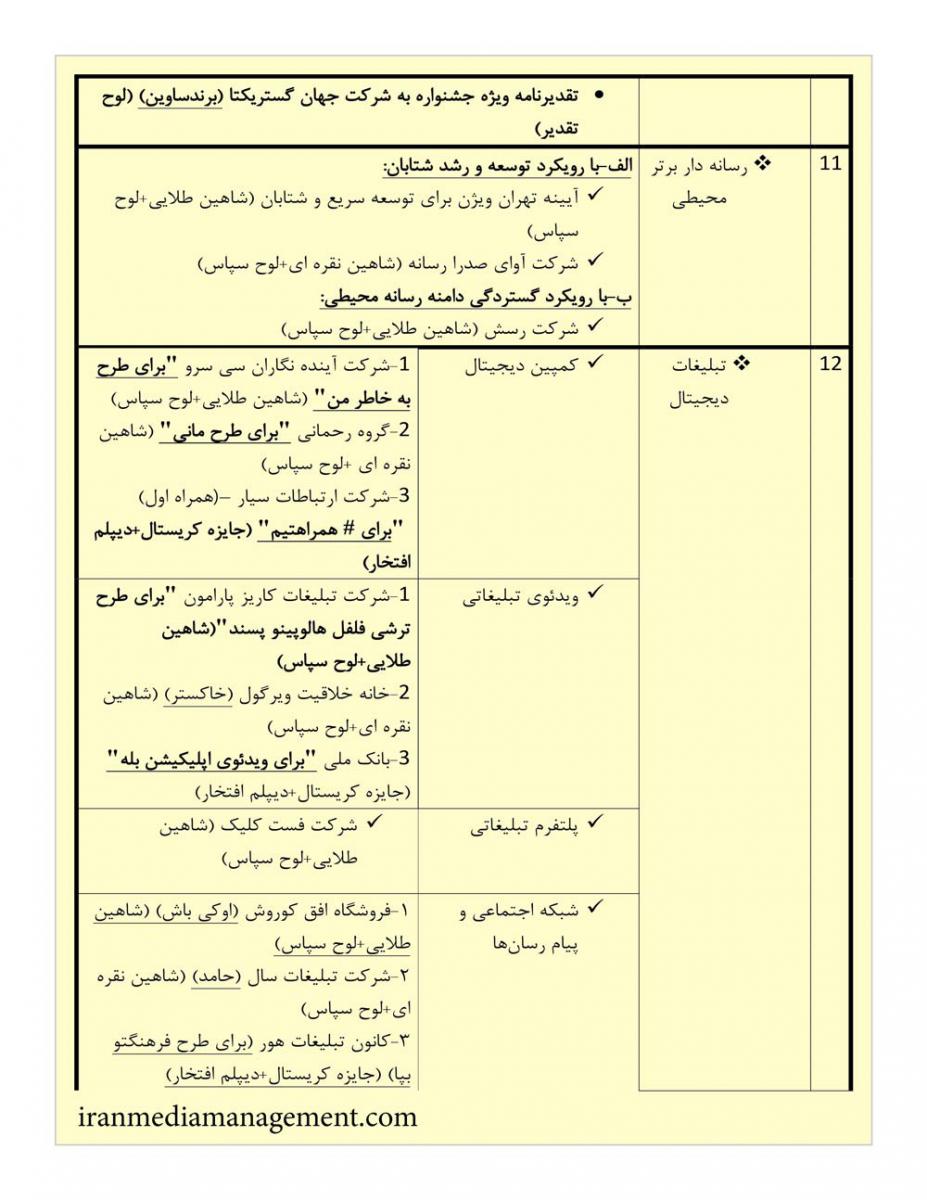 • تقدیرنامه ویژه جشنواره به شرکت جهان گستریکتا (برندساوین) (لوح
تقدیر)
11
❖ رسانه دار برتر
محیطی
الف-با رویکرد توسعه و رشد شتابان:
✓ آیینه تهران ویژن برای توسعه سریع و شتابان (شاهین طلایی+لوح
سپاس)
✓ شرکت آوای صدرا رسانه (شاهین نقره ای+لوح سپاس)
ب-با رویکرد گستردگی دامنه رسانه محیطی:
✓ شرکت رسش (شاهین طلایی+لوح سپاس)
12
❖ تبلیغات
دیجیتال
✓ کمپین دیجیتال
1-شرکت آینده نگاران سی سرو "برای طرح
به خاطر من" (شاهین طلایی+لوح سپاس)
2-گروه رحمانی "برای طرح مانی" (شاهین
نقره ای +لوح سپاس)
3-شرکت ارتباطات سیار –(همراه اول)
"برای # همراهتیم" (جایزه کریستال+دیپلم
افتخار)
✓ ویدئوی تبلیغاتی
1-شرکت تبلیغات کاریز پارامون "برای طرح
ترشی فلفل هالوپینو پسند"(شاهین
طلایی+لوح سپاس)
2-خانه خلاقیت ویرگول (خاکستر) (شاهین
نقره ای+لوح سپاس)
3-بانک ملی "برای ویدئوی اپلیکیشن بله"
(جایزه کریستال+دیپلم افتخار)
✓ پلتفرم تبلیغاتی
✓ شرکت فست کلیک (شاهین
طلایی+لوح سپاس)
✓ شبکه اجتماعی و
پیام رسان‌ها
۱-فروشگاه افق کوروش (اوکی باش) (شاهین
طلایی+لوح سپاس)
۲-شرکت تبلیغات سال (حامد) (شاهین نقره
ای+لوح سپاس)
۳-کانون تبلیغات هور (برای طرح فرهنگتو
بپا) (جایزه کریستال+دیپلم افتخار)
iranmediamanagement.com